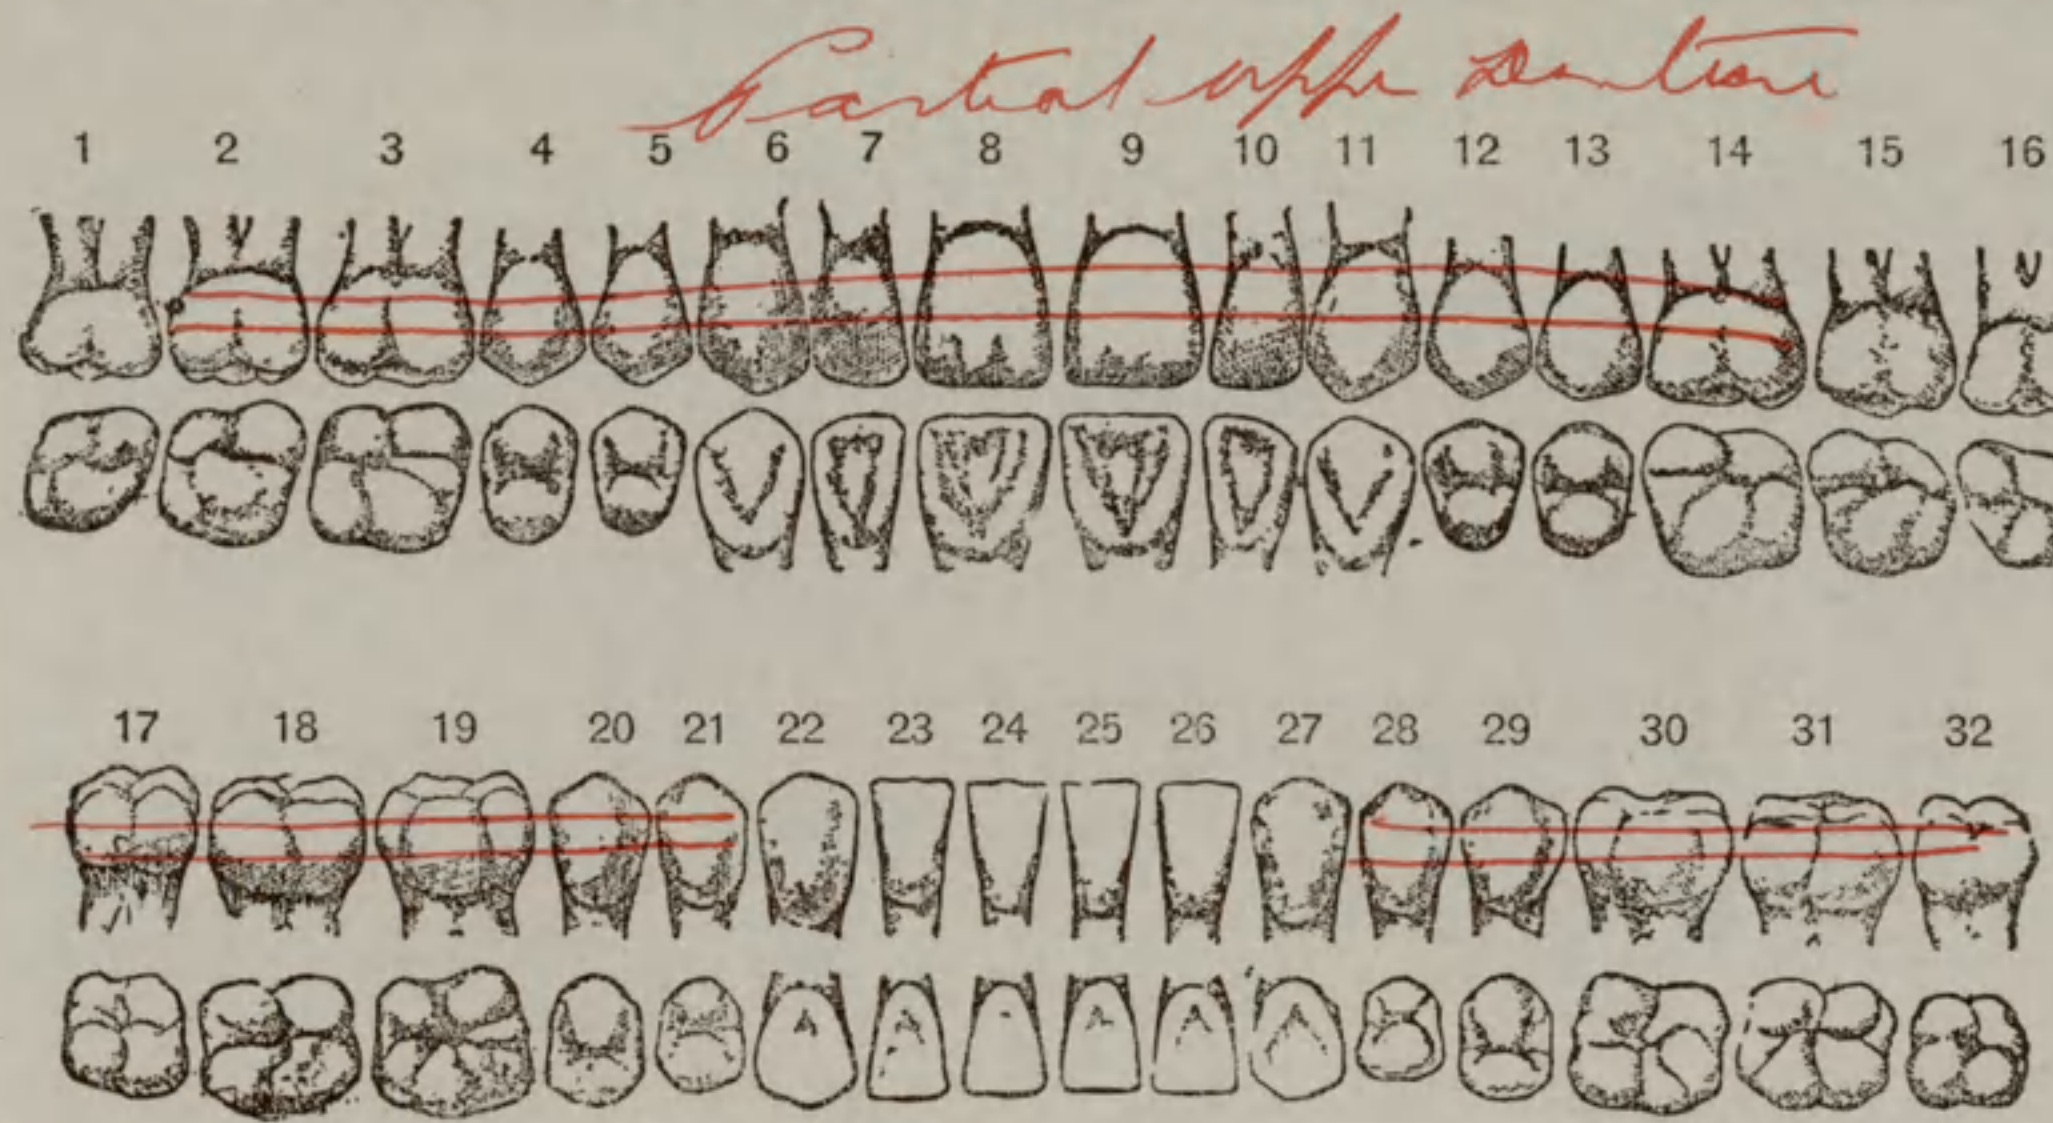 Partial upper Denture
1 2 3 4 5 6 7 8 9 10 11 12 13 14 15 16
17 18 19 20 21 22 23 24 25 26 27 28 29 30 31 32